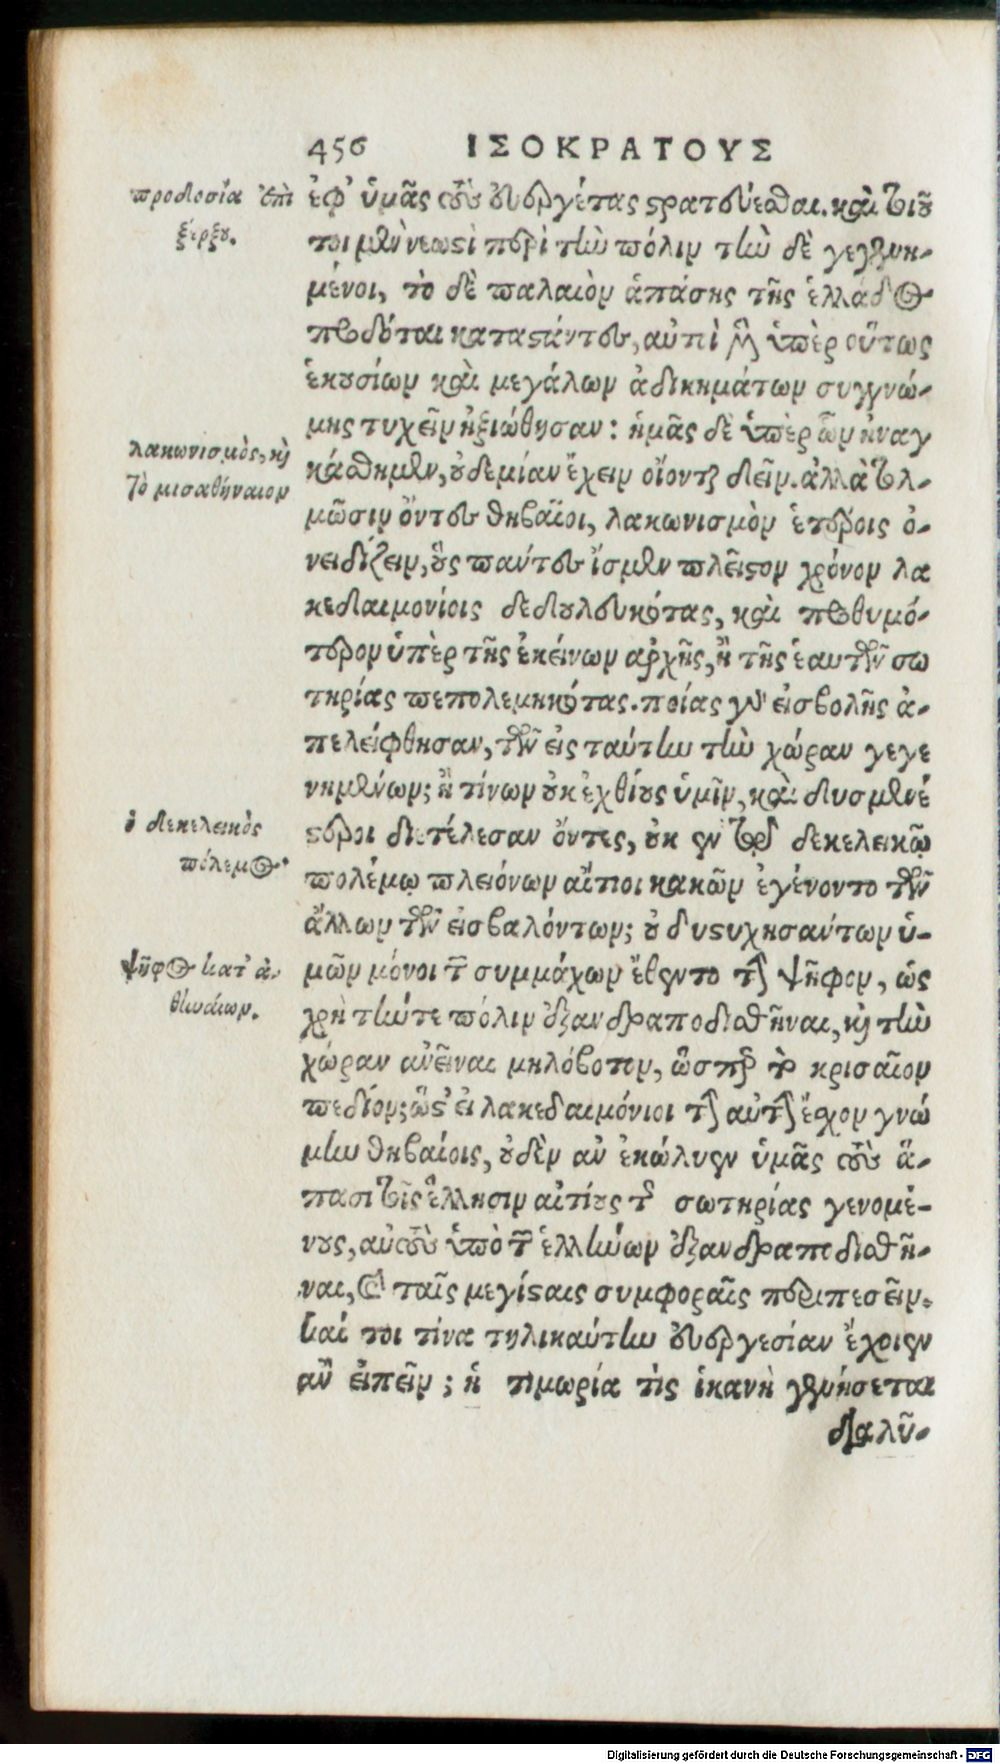 456 ΙΣΟΚΡΑΤΟΥΣ
προδοσία ἐπὶ
ξέρξου.
ἐφ' ὑμᾶς τοὺς εὐεργέτας στρατεύεσθαι. καὶ τοιοῦ
τοι μὲν νεωστὶ περὶ τὴν πόλιν τὴν δὲ γεγενη-
μένοι, τὸ δὲ παλαιὸν ἁπάσης τῆς ἑλλάδος
προδόται καταστάντες, αὐτοὶ μὲν ὑπὲρ οὕτως
ἑκουσίων καὶ μεγάλων ἀδικημάτων συγγνώ-
μης τυχεῖν ἠξιώθησαν: ἡμᾶς δὲ ὑπὲρ ὧν ἠναγ
λακωνισμὸς, καὶ
τὸ μισαθήναιον
κάσθημεν, οὐδεμίαν ἔχειν οἴονται δεῖν. ἀλλὰ τολ-
μῶσιν ὄντες θηβαῖοι, λακωνισμὸν ἑτέροις ὀ-
νειδίζειν, οὓς πάντες ἴσμεν πλεῖστον χρόνον λα
κεδαιμονίοις δεδουλευκότας, καὶ προθυμό-
τερον ὑπὲρ τῆς ἐκείνων ἀρχῆς, ἢ τῆς ἑαυτῶν σω
τηρίας πεπολεμηκότας. ποίας γὰρ εἰσβολῆς ἀ-
πελείφθησαν, τῶν εἰς ταύτην τὴν χώραν γεγε
νημένων; ἢ τίνων οὐκ ἐχθίους ὑμῖν, καὶ δυσμενέ
ὁ δεκελεικὸς
πόλεμος.
στεροι διετέλεσαν ὄντες, οὐκ ἐν τῷ δεκελεικῷ
πολέμῳ πλειόνων αἴτιοι κακῶν ἐγένοντο τῶν
ἄλλων τῶν εἰσβαλόντων; οὐ δυστυχησάντων ὑ-
ψῆφος κατ' ἀ-
θηναίων.
μῶν μόνοι τῶν συμμάχων ἔθεντο τὴν ψῆφον, ὡς
χρὴ τήν τε πόλιν ἐξανδραποδισθῆναι, καὶ τὴν
χώραν ἀνεῖναι μηλόβοτον, ὥσπερ τὸ κρισαῖον
πεδίον; ὥστ' εἰ λακεδαιμόνιοι τὴν αὐτὴν ἔσχον γνώ
μην θηβαίοις, οὐδὲν ἂν ἐκώλυεν ὑμᾶς τοὺς ἅ-
πασι τοῖς ἕλλησιν αἰτίους τῆς σωτηρίας γενομέ-
νους, αὐτοὺς ὑπὸ τῶν ἑλλήνων ἐξανδραποδισθῆ-
ναι, καὶ ταῖς μεγίσταις συμφοραῖς περιπεσεῖν.
καί τοι τίνα τηλικαύτην εὐεργεσίαν ἔχοιεν
ἂν εἰπεῖν; ἢ τιμωρία τὶς ἱκανὴ γενήσεται
διαλῦ-
Digitalisierung gefördert durch die Deutsche Forschungsgemeinschaft - DFG